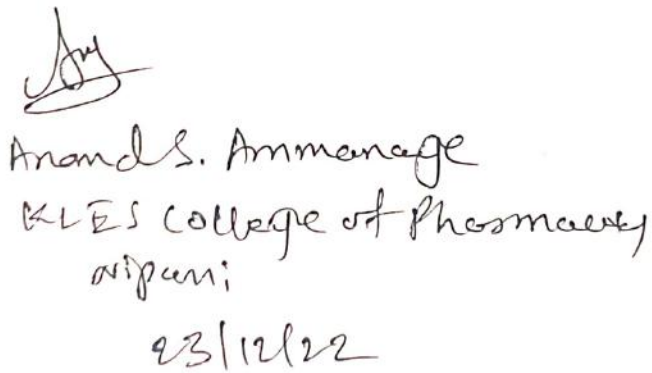 Anand S. Ammanage
KLES College of Pharmacy
Nipani
23/12/22